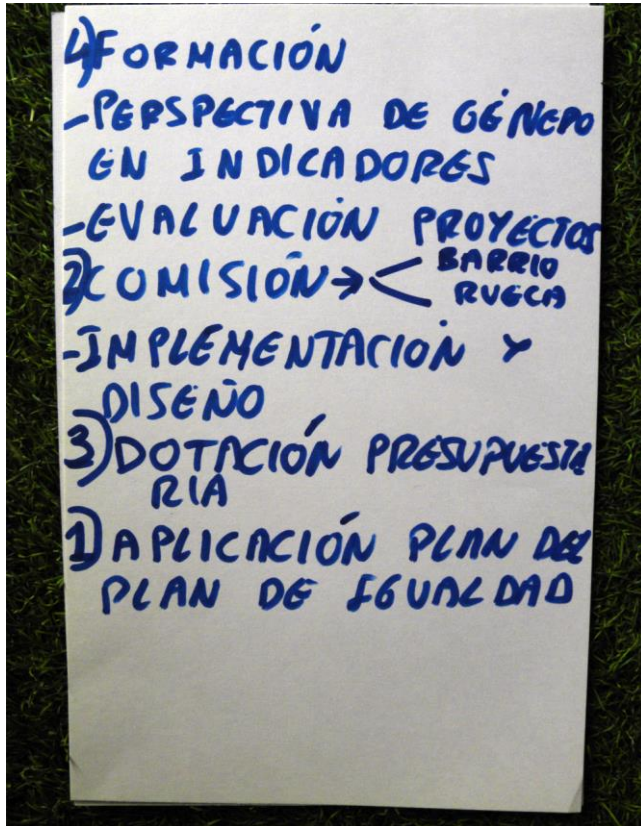 4) FORMACIÓN
- PERSPECTIVA DE GÉNERO
EN INDICADORES
- EVALUACIÓN PROYECTOS
2) COMISIÓN → < BARRIO
RUECA
- IMPLEMENTACIÓN Y
DISEÑO
3) DOTACIÓN PRESUPUESTA
RIA
1) APLICACIÓN PLAN DEL
PLAN DE IGUALDAD